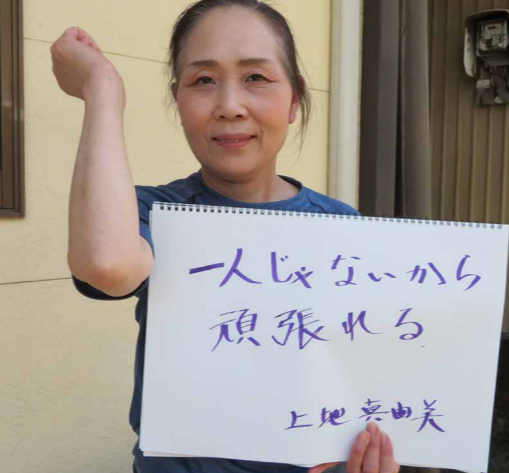 一人じゃないから
頑張れる
上地真由美